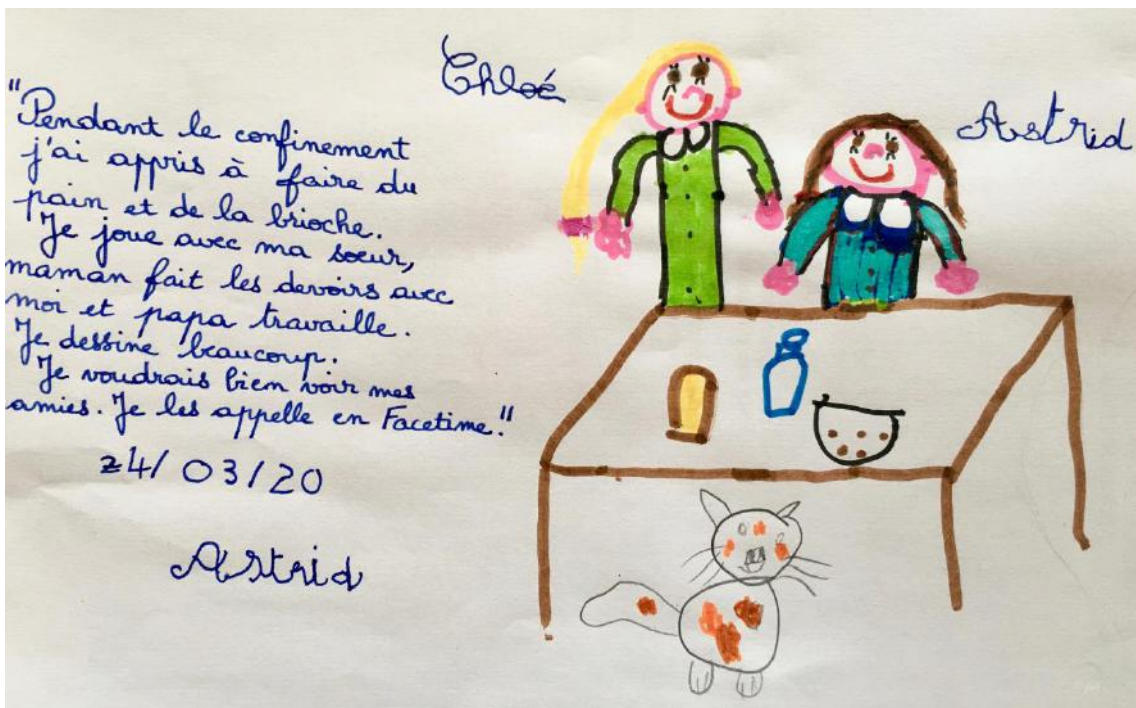 "Pendant le confinement
j'ai appris à faire du
pain et de la brioche.
Je joue avec ma soeur,
maman fait les devoirs avec
moi et papa travaille.
Je dessine beaucoup.
Je voudrais bien voir mes
amies. Je les appelle en Facetime."
24/03/20
Astrid
Chloé
Astrid